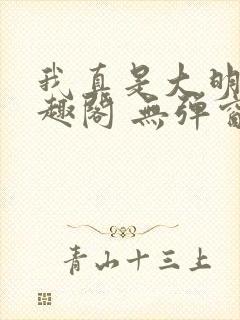 我真是大明
趣閣 無彈窗
青山十三上